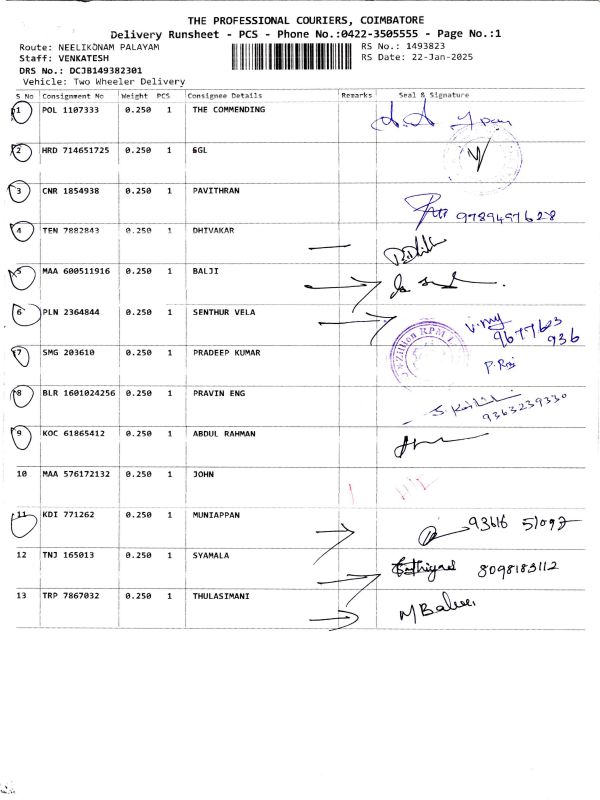 THE PROFESSIONAL COURIERS, COIMBATORE
Delivery Runsheet - PCS - Phone No.:0422-3505555 - Page No.:1
Route: NEELIKONAM PALAYAM RS No.: 1493823
Staff: VENKATESH RS Date: 22-Jan-2025
DRS No.: DCJB149382301
Vehicle: Two Wheeler Delivery
S.No Consignment No Weight PCS Consignee Details Remarks Seal & Signature
1 POL 1107333 0.250 1 THE COMMENDING
2 HRD 714651725 0.250 1 SGL
3 CNR 1854938 0.250 1 PAVITHRAN 9789497628
4 TEN 7882843 0.250 1 DHIVAKAR
5 MAA 600511916 0.250 1 BALJI
6 PLN 2364844 0.250 1 SENTHUR VELA
9677623
936
7 SMG 203610 0.250 1 PRADEEP KUMAR
8 BLR 1601024256 0.250 1 PRAVIN ENG
9363239330
9 KOC 61865412 0.250 1 ABDUL RAHMAN
10 MAA 576172132 0.250 1 JOHN
11 KDI 771262 0.250 1 MUNIAPPAN
12 TNJ 165013 0.250 1 SYAMALA 8098183112
13 TRP 7867032 0.250 1 THULASIMANI